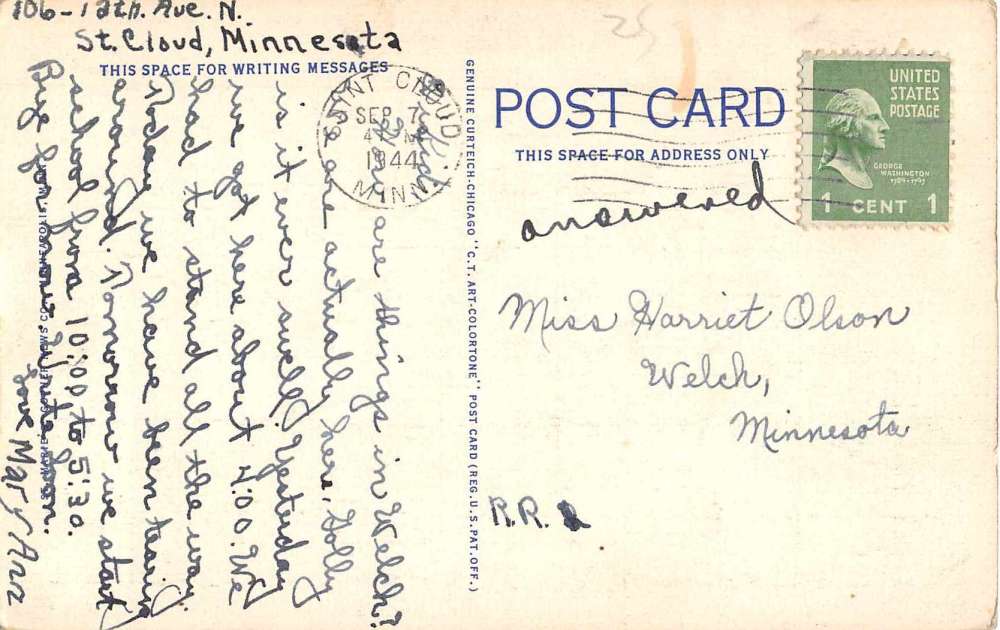 106-12th. Ave. N.
St. Cloud, Minnesota
THIS SPACE FOR WRITING MESSAGES
Harriet
How are things in Welch?
We are actually here, Golly
is it ever swell! Yesterday
we got here about 4:00. We
had to stand all the way.
Today we have been tearing
around. Tomorrow we start
school from 10:00 to 5:30.
Bye for now. Write soon.
Love Mary Ann
SAINT CLOUD
SEP 7
4 PM
1944
MINN.
GENUINE CURTEICH-CHICAGO "C.T. ART-COLORTONE" POST CARD (REG. U.S. PAT. OFF.)
POST CARD
THIS SPACE FOR ADDRESS ONLY
UNITED
STATES
POSTAGE
GEORGE
WASHINGTON
1789-1797
1 CENT 1
answered
Miss Harriet Olson
Welch,
Minnesota
R.R.